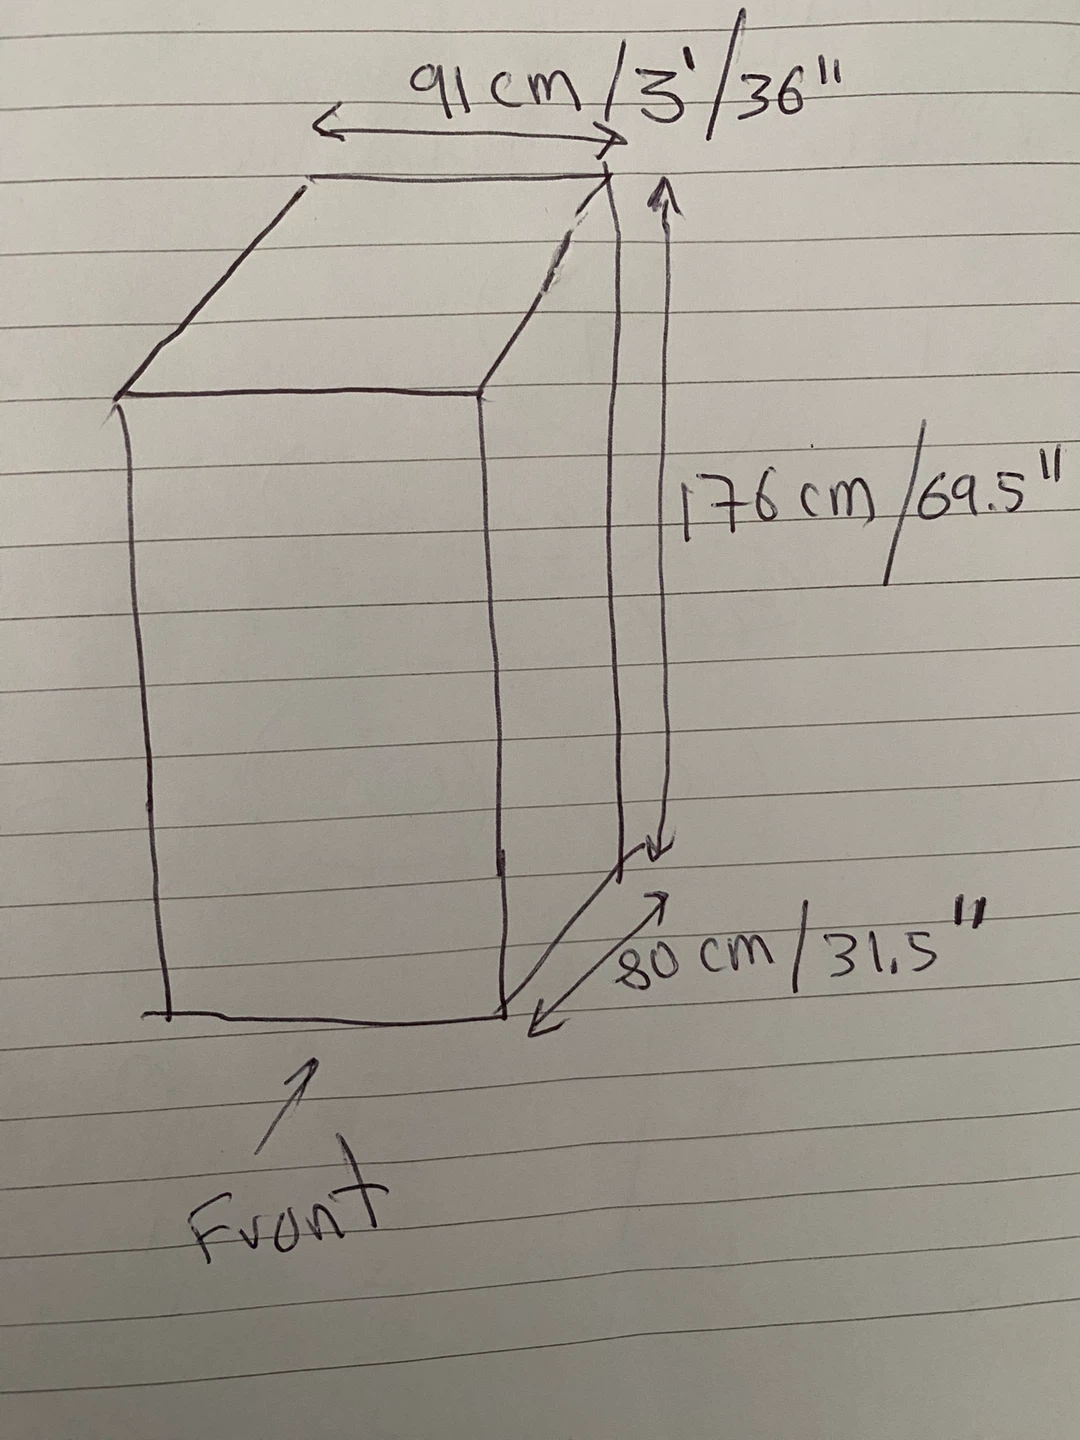 91 cm / 3' / 36"
176 cm / 69.5"
80 cm / 31.5"
Front